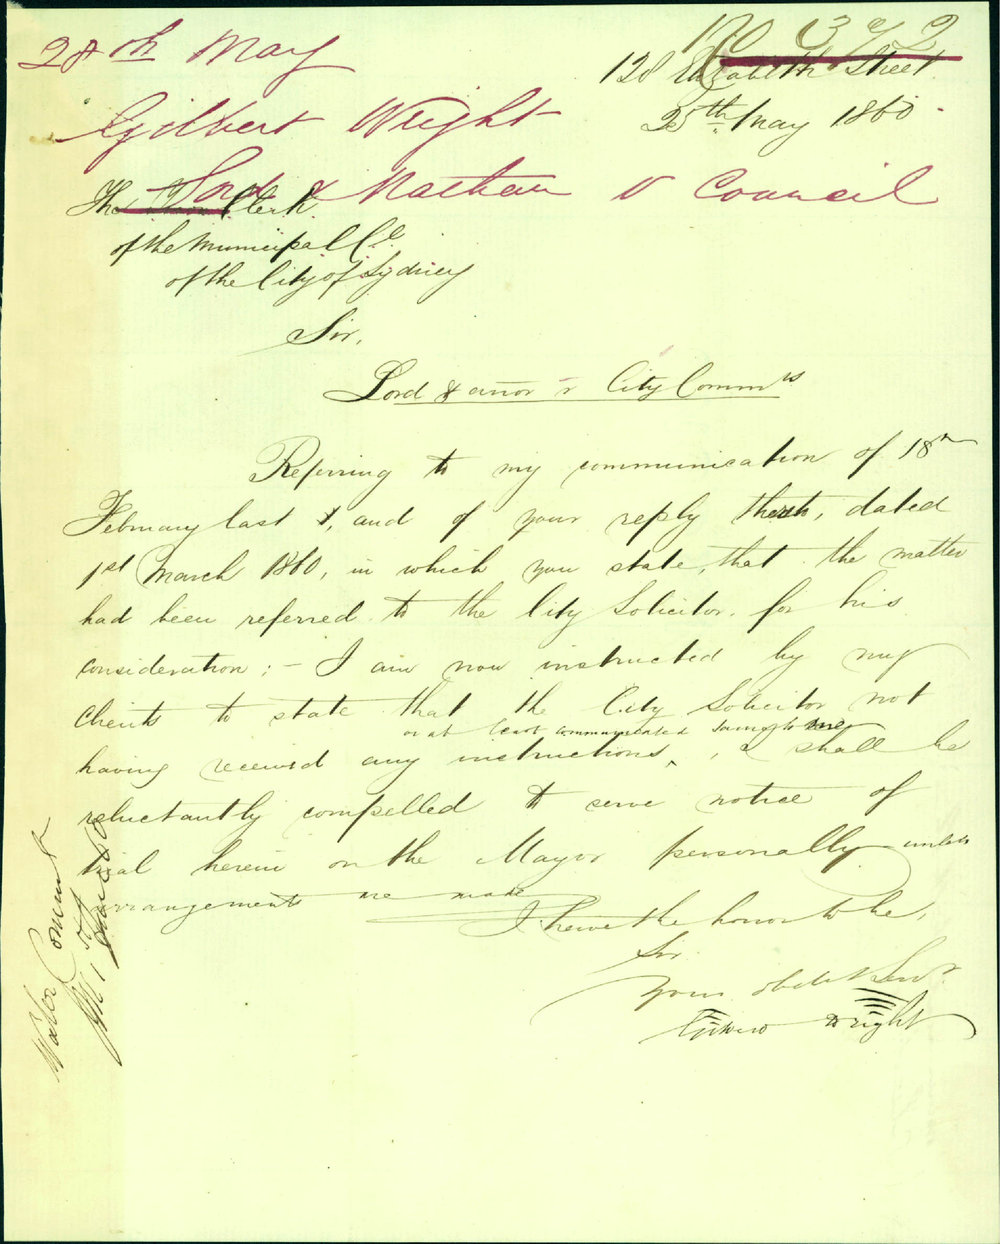 28th May
Gilbert Wright
Lord & Nathan v Council
128 Elizabeth Street
25th May 1860
The Town Clerk
of the Municipal Cl
of the City of Sydney
Sir,
Lord & anor v City Commrs
Referring to my communication of 18th
February last, and of your reply thereto, dated
1st March 1860, in which you state, that the matter
had been referred to the City Solicitor for his
consideration; – I am now instructed by my
clients to state that the City Solicitor not
or at least communicated same to me
having received any instructions, I shall be
reluctantly compelled to serve notice of
trial herein on the Mayor personally unless
arrangements are made
I have the honor to be,
Sir
Your obedt Servt
Gilbert Wright
Water Commt